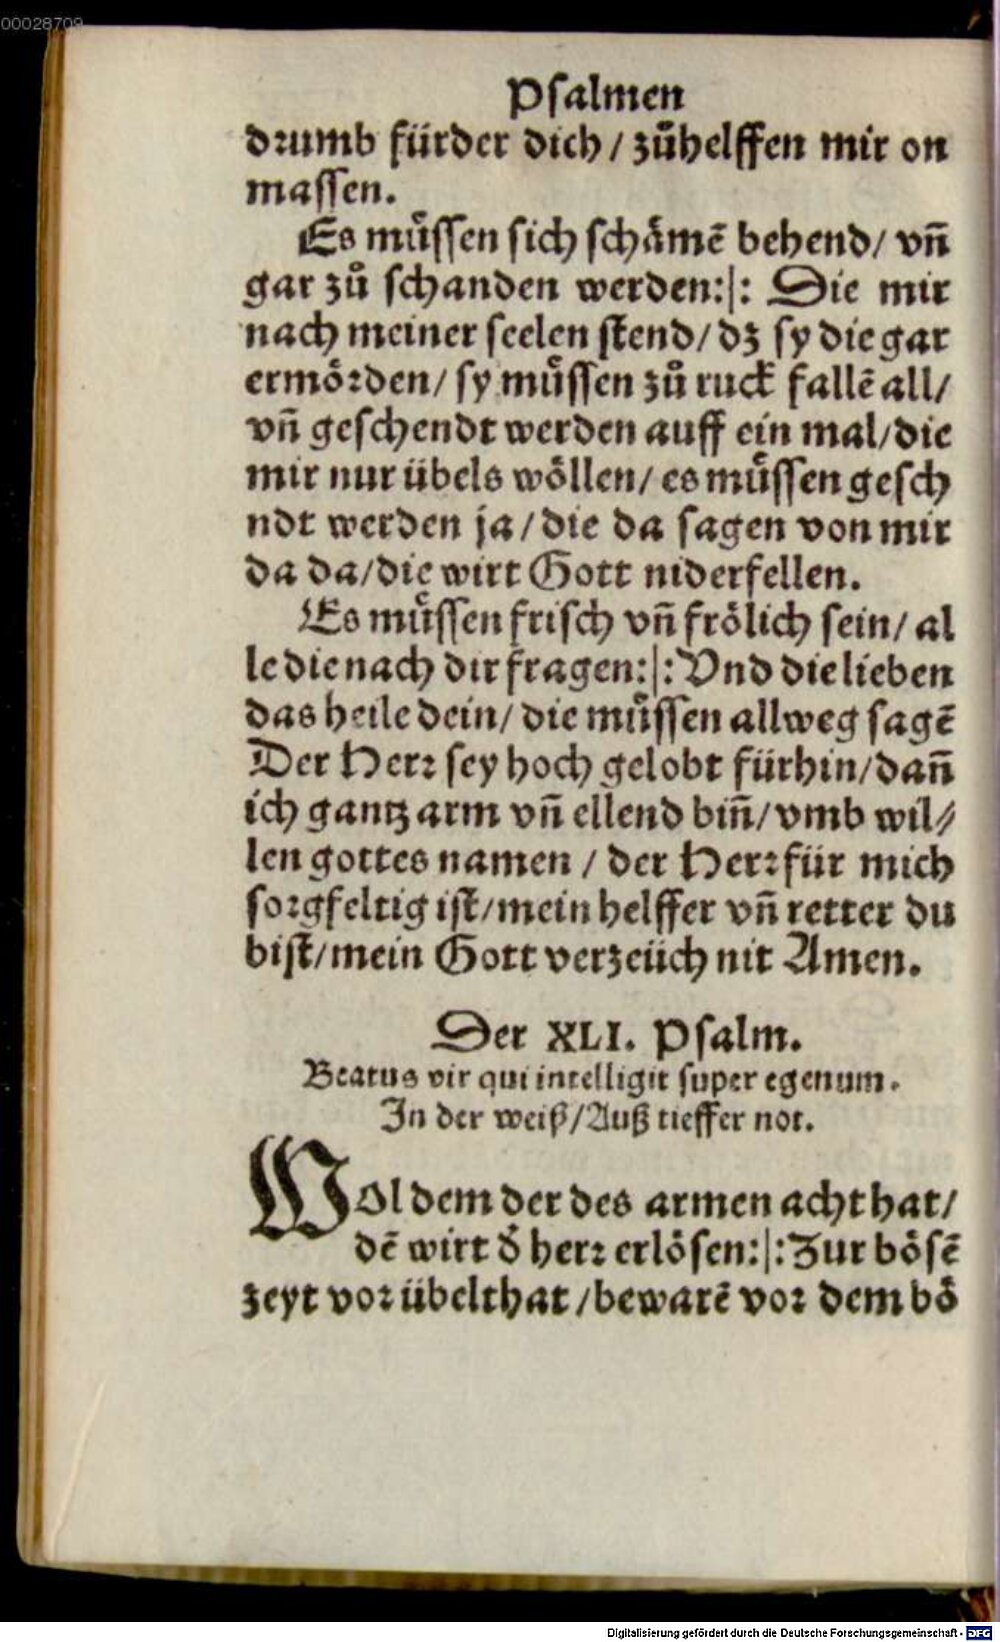 00028709
Psalmen
drumb fürder dich / zůhelffen mir on
massen.
Es mu̎ssen sich schämē behend / vñ
gar zů schanden werden:|: Die mir
nach meiner seelen stend / dz sy die gar
ermörden / sy mu̎ssen zů ruck fallē all /
vñ geschendt werden auff ein mal / die
mir nur übels wöllen / es mu̎ssen gesch
ndt werden ja / die da sagen von mir
da da / die wirt Gott niderfellen.
Es mu̎ssen frisch vñ frölich sein / al
le die nach dir fragen:|: Vnd die lieben
das heile dein / die mu̎ssen allweg sagē
Der Herr sey hoch gelobt fürhin / dañ
ich gantz arm vñ ellend biñ / vmb wil⸗
len gottes namen / der Herr für mich
sorgfeltig ist / mein helffer vñ retter du
bist / mein Gott verzeüch nit Amen.
Der XLI. Psalm.
Beatus vir qui intelligit super egenum.
In der weiß / Auß tieffer not.
Wol dem der des armen acht hat /
dē wirt d̕ herr erlösen:|: Zur bösē
zeyt vor übelthat / bewarē vor dem bö
Digitalisierung gefördert durch die Deutsche Forschungsgemeinschaft - DFG